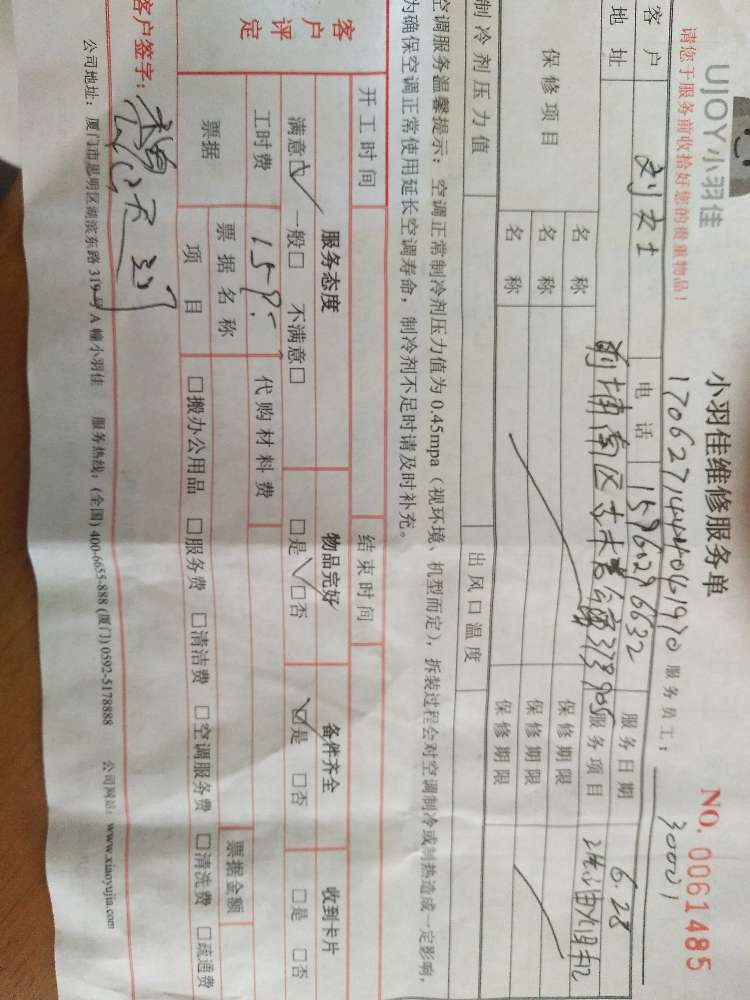 UJOY小羽佳
小羽佳维修服务单
NO. 0061485
请您于服务前收拾好您的贵重物品！
服务员工： 30001
客户 刘女士 电话 15960296632 服务日期 6.28
地址 服务项目 洗油烟机
保修项目 名称 保修期限
名称 保修期限
名称 保修期限
制冷剂压力值 出风口温度
空调服务温馨提示：空调正常制冷剂压力值为0.45mpa（视环境、机型而定），拆装过程会对空调制冷或制热造成一定影响，
为确保空调正常使用延长空调寿命，制冷剂不足时请及时补充。
开工时间 结束时间
客户评定 服务态度 物品完好 备件齐全 收到卡片
满意☑ 一般□ 不满意□ □是 □否 ☑是 □否 □是 □否
工时费 158 代购材料费
票据 票据名称 票据金额
项目 □搬办公用品 □服务费 □清洁费 □空调服务费 □清洗费 □疏通费
客户签字：
公司地址：厦门市思明区湖滨东路319号A幢小羽佳 服务热线：(全国) 400-6655-888 (厦门) 0592-5178888 公司网站：www.xiaoyujia.com